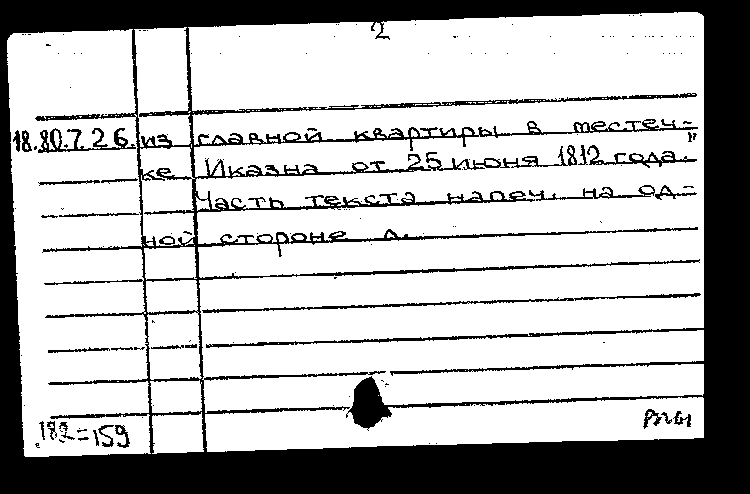 2
18.80.7.26. из главной квартиры в местеч-
ке Иказна от 25 июня 1812 года."
Часть текста напеч. на од-
ной стороне л.
182=159